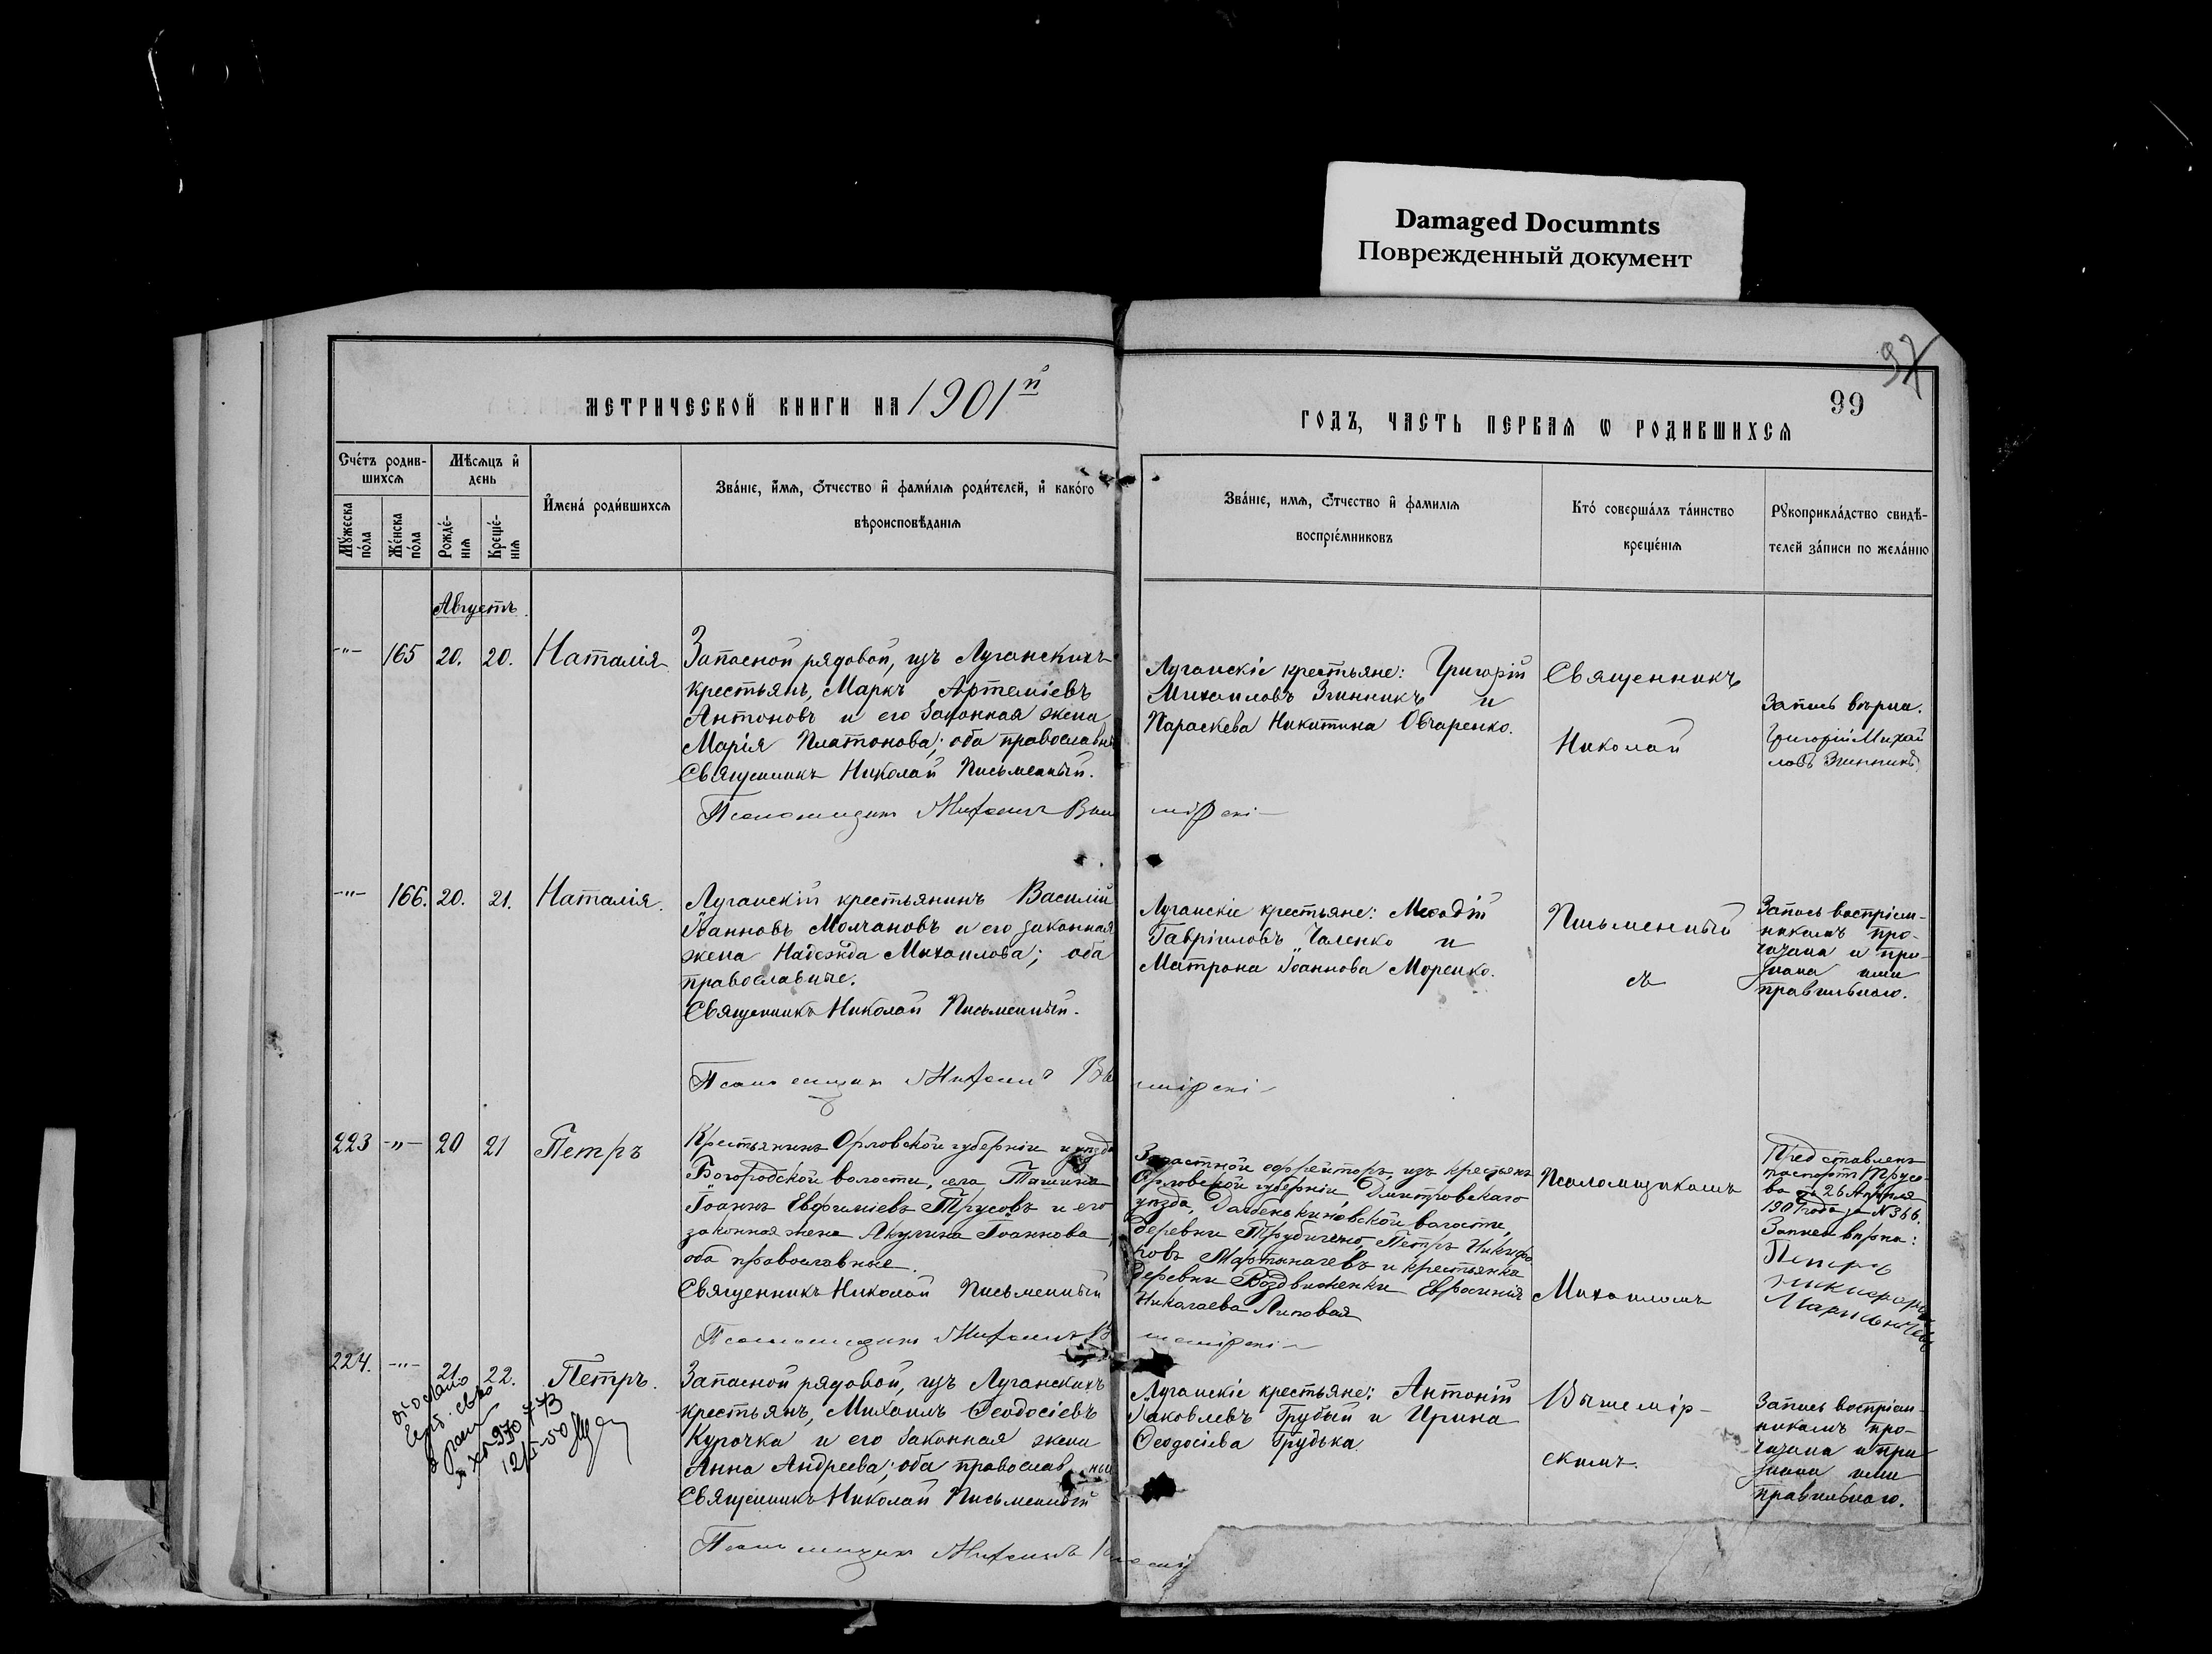 Damaged Documnts
Поврежденный документ
97
99
МЕТРИЧЕСКОЙ КНИГИ НА 1901й
ГОДЪ, ЧАСТЬ ПЕРВАЯ Ѡ РОДИВШИХСЯ
Счётъ родив-
шихся
Мѣсяцъ и
день
Мужеска
пола
Женска
пола
Рожде-
нія
Креще-
нія
Имена родившихся
Званіе, имя, отчество и фамилія родителей, и какого
вѣроисповѣданія
Званіе, имя, отчество и фамилія
воспріемниковъ
Кто совершалъ таинство
крещенія
Рукоприкладство свидѣ-
телей записи по желанію
Августъ
-"- 165 20. 20. Наталія
Запасной рядовой, изъ Луганскихъ
крестьянъ, Маркъ Артеміевъ
Антоновъ и его законная жена
Марія Платонова; оба православн
Священникъ Николай Письменный.
Псаломщикъ Михаилъ Выше
мірскі
Луганскіе крестьяне: Григорій
Михаиловъ Згинникъ и
Параскева Никитина Овчаренко.
Священникъ
Николай
Запись вѣрна.
Григорій Михай
ловъ Згинникъ
-"- 166. 20. 21. Наталія.
Луганскій крестьянинъ Василій
Іоанновъ Молчановъ и его законная
жена Надежда Михаилова; оба
православные.
Священникъ Николай Письменный.
Псаломщикъ Михаилъ Вы
мірскі
Луганскіе крестьяне: Меѳодій
Гавріиловъ Чаленко и
Матрона Іоаннова Моренко.
Письменный
съ
Запись воспріем-
никамъ про-
читана и при-
знана ими
правильною.
223 -"- 20 21 Петръ
Крестьянинъ Орловской губерніи и уѣзда
Богородской волости, села
Іоаннъ Евфиміевъ Трусовъ и его
законная жена Акулина Іоаннова
оба православные.
Священникъ Николай Письменный
Псаломщикъ Михаилъ В
шемірскі
Запастной ефрейторъ, изъ крестьянъ
Орловской губерніи, Дмитровскаго
уѣзда, Долбенькиновской волости,
деревни Петръ Никифо
ровъ Мартыначевъ и крестьянка
деревни Воздвиженки Евфосинія
Николаева Липовая
Псаломщикомъ
Михаиломъ
Представленъ
паспортъ Трусо-
ва 26 Апрѣля
190 года за N 366.
Запись вѣрна:
Петръ
Никифоро
224. -"- 21 22. Петръ.
Запасной рядовой, изъ Луганскихъ
крестьянъ, Михаилъ Ѳеодосіевъ
Курочка и его законная жена
Анна Андреева; оба православ ные
Священникъ Николай Письменный
Псаломщикъ Михаилъ
Луганскіе крестьяне: Антоній
Іаковлевъ Грубый и Ирина
Ѳеодосіева Грудька.
Вышемір-
скимъ.
Запись воспріем-
никамъ про-
читана и при
знана ими
правильною.